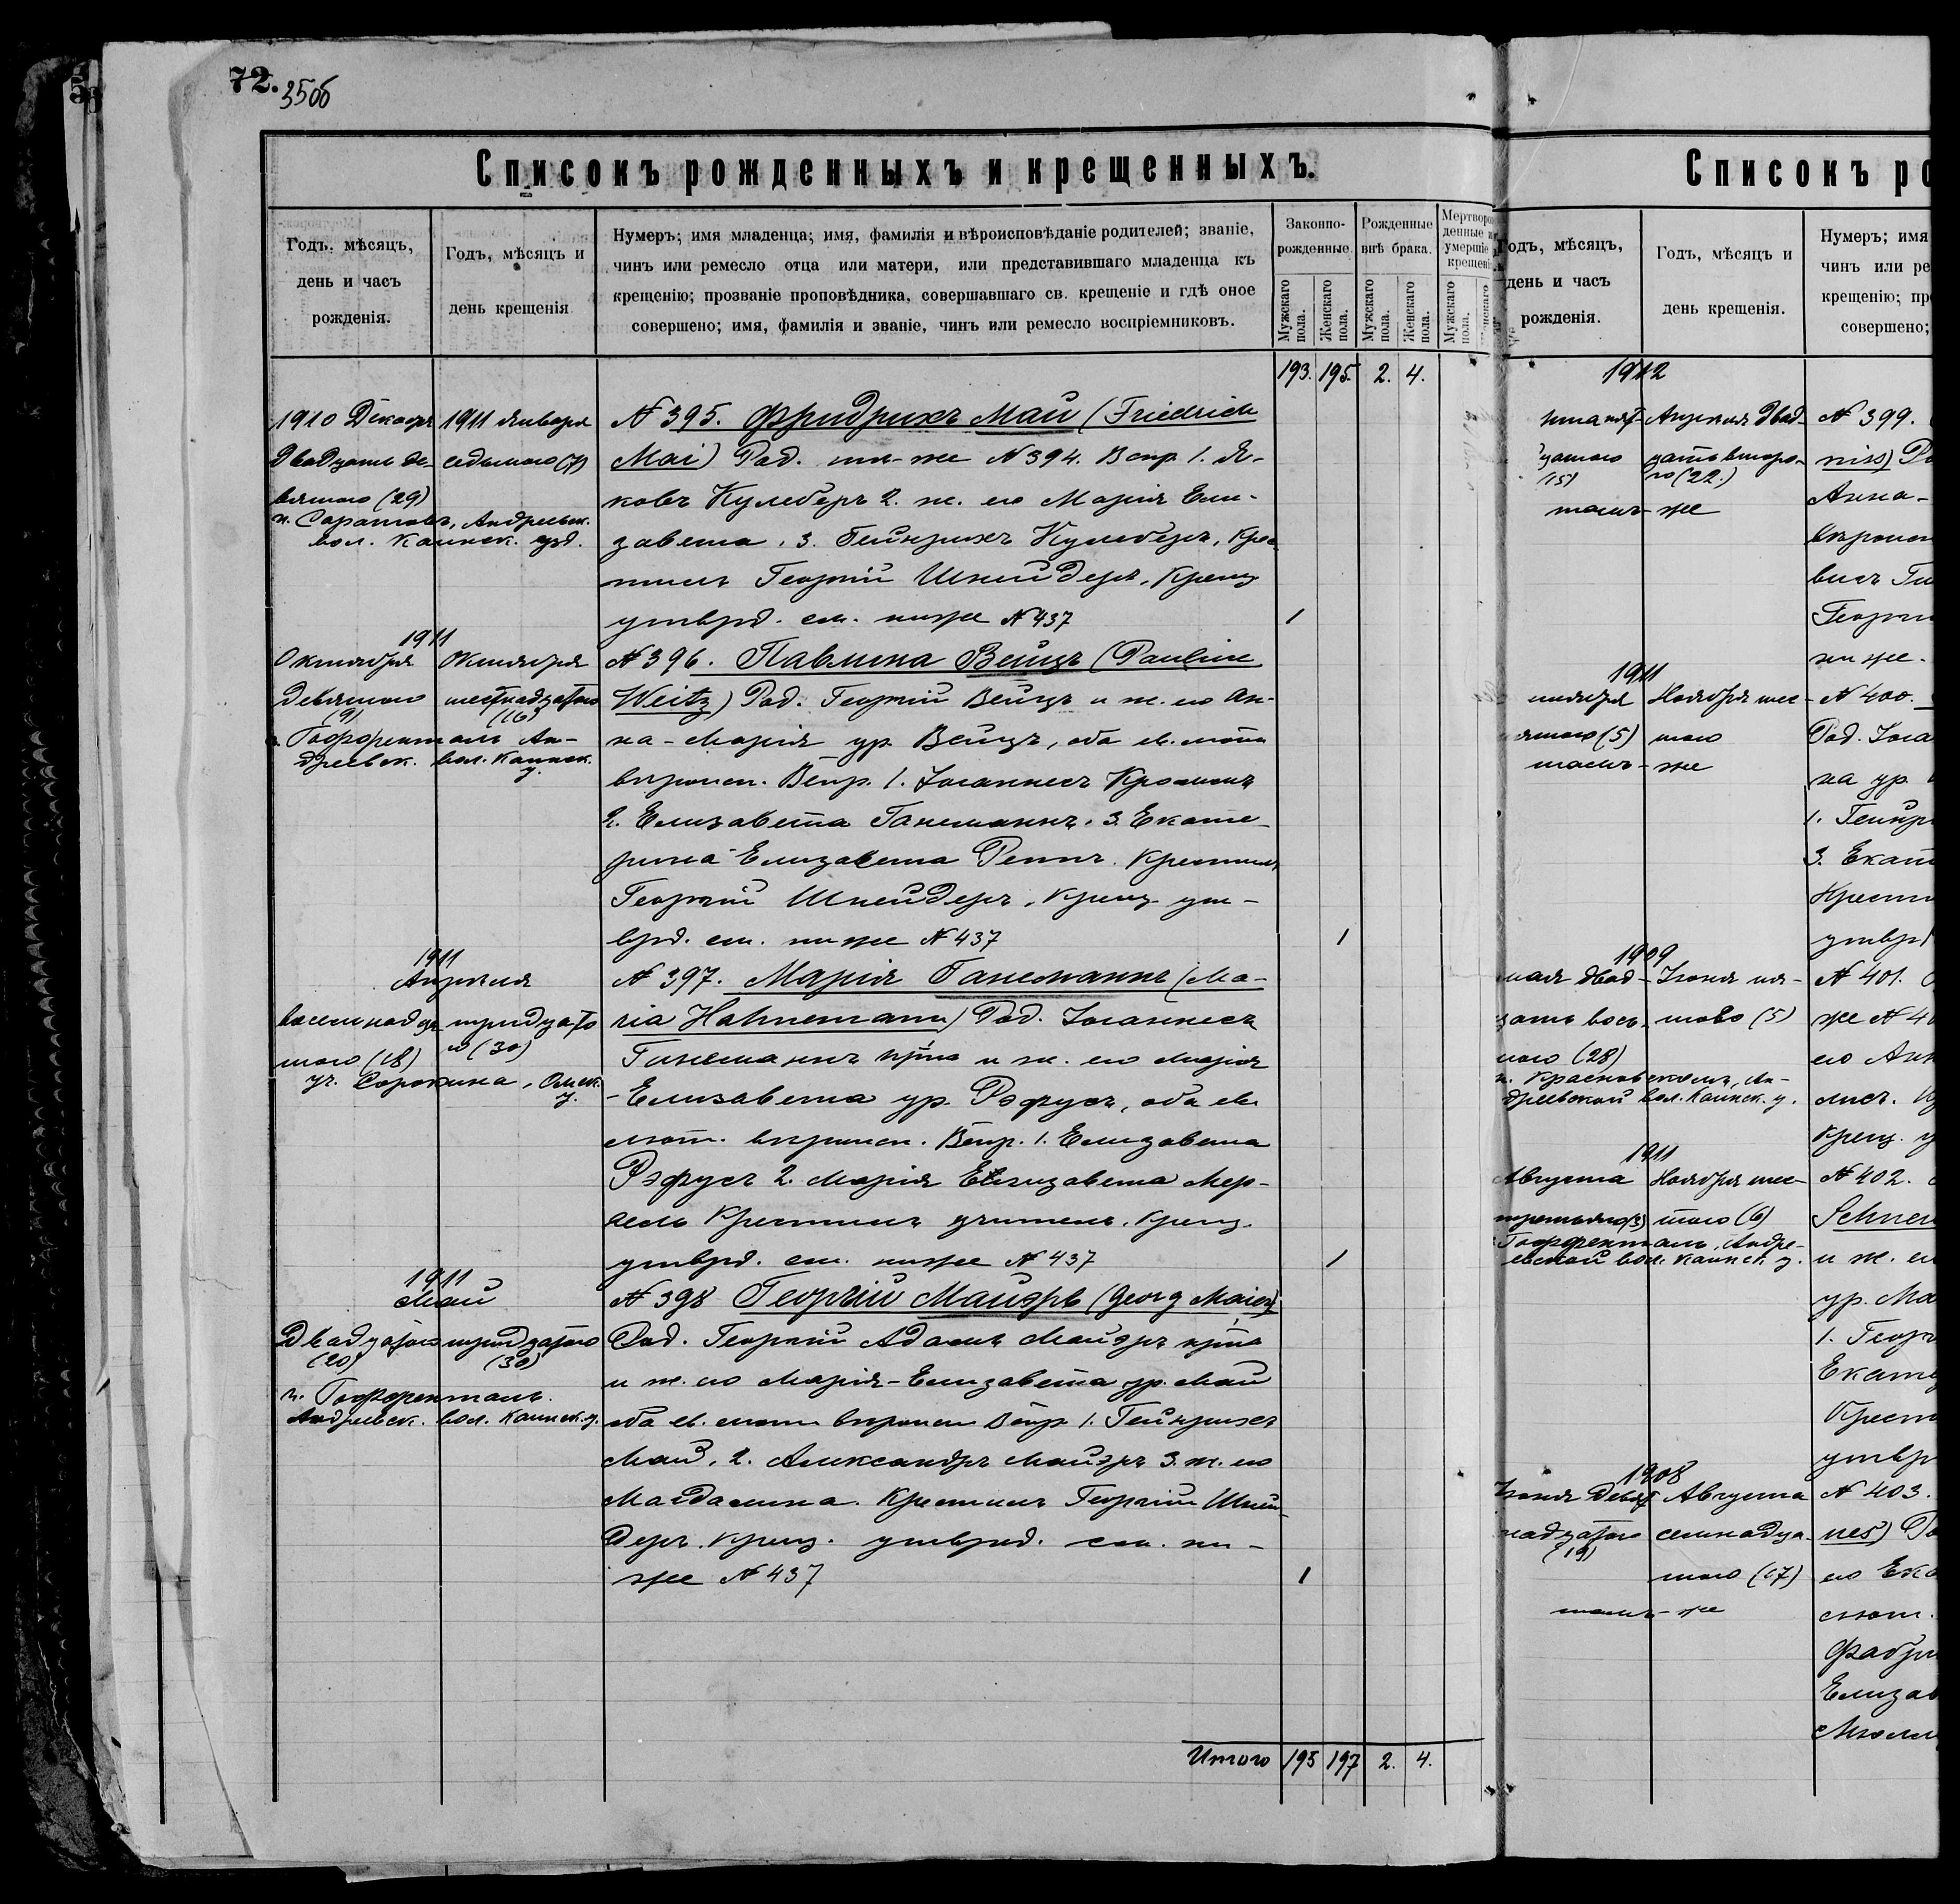 72.
35об
Списокъ рожденныхъ и крещенныхъ.
Годъ, мѣсяцъ,
день и часъ
рожденія.
Годъ, мѣсяцъ и
день крещенія
Нумеръ; имя младенца; имя, фамилія и вѣроисповѣданіе родителей; званіе,
чинъ или ремесло отца или матери, или представившаго младенца къ
крещенію; прозваніе проповѣдника, совершавшаго св. крещеніе и гдѣ оное
совершено; имя, фамилія и званіе, чинъ или ремесло воспріемниковъ.
Законно-
рожденные.
Рожденные
внѣ брака.
Мужскаго пола.
Женскаго пола.
Мужскаго пола.
Женскаго пола.
Мужскаго пола.
193. 195. 2. 4.
1910 Декабря
Двадцать де-
вятаго (29)
п. Саратовъ, Андреевск.
вол. Каинск. уѣзд.
1911 января
седьмого (7)
№ 395. Фридрихъ Май (Friedrich
Mai) Род. тѣ-же № 394. Вспр. 1. Я-
ковъ Кулеберъ 2. ж. его Марія Ели-
завета, 3. Гейнрихъ Кулеберъ, Крес
тилъ Георгій Шнейдеръ, Крещ
утврд. см. ниже № 437
1
1911
Октября
девятаго
(9)
п. Гофференталь Ан-
дреевск. вол. Каинск.
у.
Октября
шестнадцатого
(16)
№ 396. Павлина Вейцъ (Pauline
Weitz) Род. Георгій Вейцъ и ж. его Ан-
на-Марія ур. Вейцъ, оба ев. лют.
вѣроисп. Вспр. 1. Іоаннесъ Кромъ
2. Елизавета Ганеманнъ, 3. Екате-
рина Елизавета Реннъ. Крестилъ
Георгій Шнейдеръ, Крещ. ут-
врд. см. ниже № 437
1
1911
Апрѣля
восемнадца
таго (18)
уч. Сорокина, Омск.
у.
тридцато
го (30)
№ 397. Марія Ганеманнъ (Ma-
ria Hahnemann) Род. Іоаннесъ
Ганеманнъ крнъ и ж. его Марія
-Елизавета ур. Рэфусъ, оба ев.
лют. вѣроисп. Вспр. 1. Елизавета
Рэфусъ 2. Марія Елизавета Мер-
кель Крестилъ учитель. Крещ.
утврд. см. ниже № 437
1
1911
Май
Двадцатого
(20)
п. Гофференталь.
Андреевск. вол. Каинск. у.
тридцатого
(30)
№ 398 Георгій Майэръ (Georg Maier)
Род. Георгій Адамъ Майэръ крнъ
и ж. его Марія-Елизавета ур. Май
оба ев. лют. вѣроисп Вспр 1. Гейнрихъ
Май, 2. Александръ Майэръ 3. ж. его
Магдалина. Крестилъ Георгій Шней-
деръ. Крещ. утврд. см. ни-
же № 437
1
Итого 195 197 2. 4.
Списокъ ро
Годъ, мѣсяцъ,
день и часъ
рожденія.
Годъ, мѣсяцъ и
день крещенія.
Нумеръ; имя
чинъ или ре
крещенію; пр
совершено;
1912
(15)
тамъ-же
Апрѣля двад-
цать второ-
го (22.)
№ 399.
niss) Ро
Анна-
вѣроис
Георги
ниже.
1911
(5)
тамъ-же
Ноября шес-
того
№ 400.
Род. Іога
на ур.
1. Гейнр
3. Екат
Крест
утврд
1909
мая двад-
цать вось
мого (28)
Іюня пя-
таго (5)
дреевской вол. Каинск. у.
№ 401.
же № 40
его Анн
Крещ. у
1911
Августа
третьяго (3)
Гофференталь, Андре-
евской вол. Каинск. у.
Ноября шес-
того (6)
№ 402.
Schnei
и ж. ег
ур. Ма
1. Георг
Екате
Крест
утвр
1908
Іюня девят
надцатого
(19)
тамъ-же
Августа
семнадца-
таго (17)
№ 403.
nes) Ро
его Ека
лют.
Фабри
Елизав
Мюлл